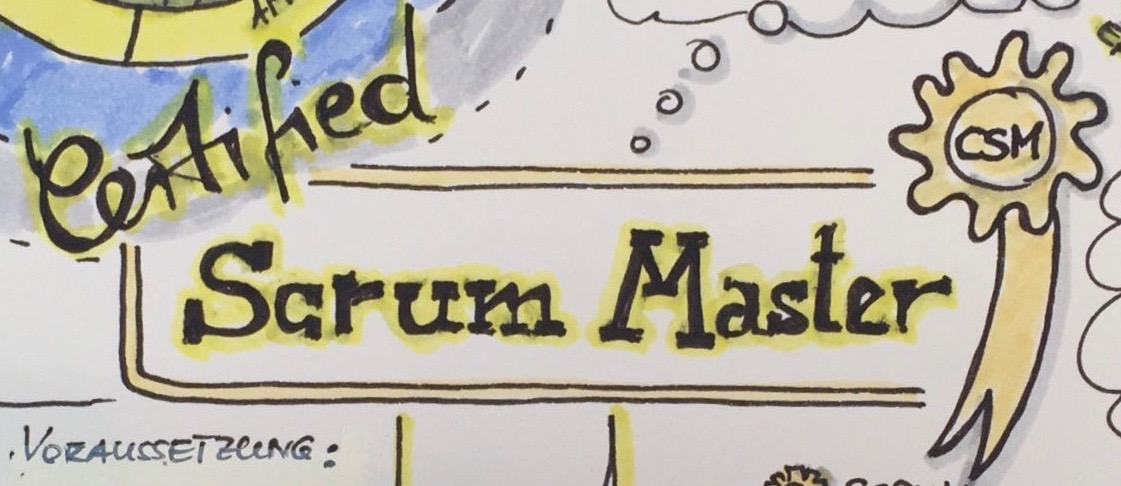 Certified
CSM
Scrum Master
VORAUSSETZUNG: